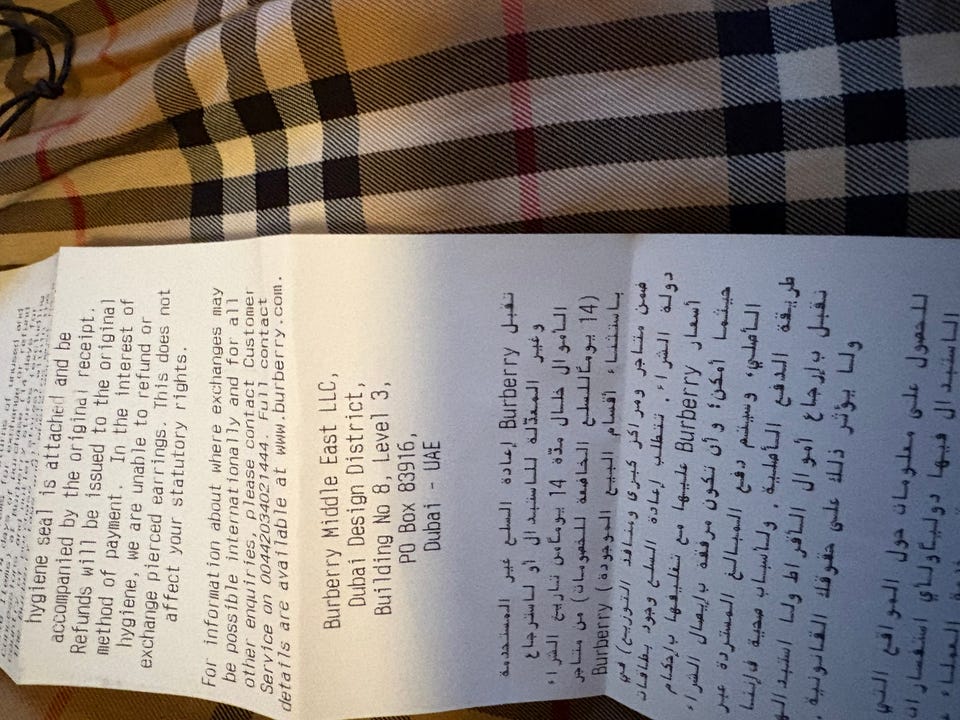 hygiene seal is attached and be
accompanied by the original receipt.
Refunds will be issued to the original
method of payment. In the interest of
hygiene, we are unable to refund or
exchange pierced earrings. This does not
affect your statutory rights.
For information about where exchanges may
be possible internationally and for all
other enquiries, please contact Customer
Service on 00442034021444. Full contact
details are available at www.burberry.com.
Burberry Middle East LLC,
Dubai Design District,
Building No 8, Level 3,
PO Box 83916,
Dubai - UAE
تقبل Burberry إعادة السلع غير المستخدمة
وغير المعدّلة للاستبدال أو لاسترجاع
الأموال خلال مدّة 14 يوماً من تاريخ الشراء
(14 يوماً للسلع الخاضعة للخصومات) من متاجر
Burberry (باستثناء أقسام البيع الموجودة
ضمن متاجر ومراكز كبرى ومنافذ التوزيع) في
دولة الشراء. تتطلب إعادة السلع وجود بطاقات
أسعار Burberry عليها مع تغليفها بإحكام
حيثما أمكن؛ وأن تكون مرفقة بإيصال الشراء
الأصلي، وسيتم دفع المبالغ المستردة عبر
طريقة الدفع الأصلية. ولأسباب صحية فإننا
نقبل بإرجاع أموال الأقراط ولا استبد
ولا يؤثر ذلك على حقوقك القانونية
للحصول على معلومات حول المواقع التي
الاستبدال فيها دولياً ولأي استفسارات